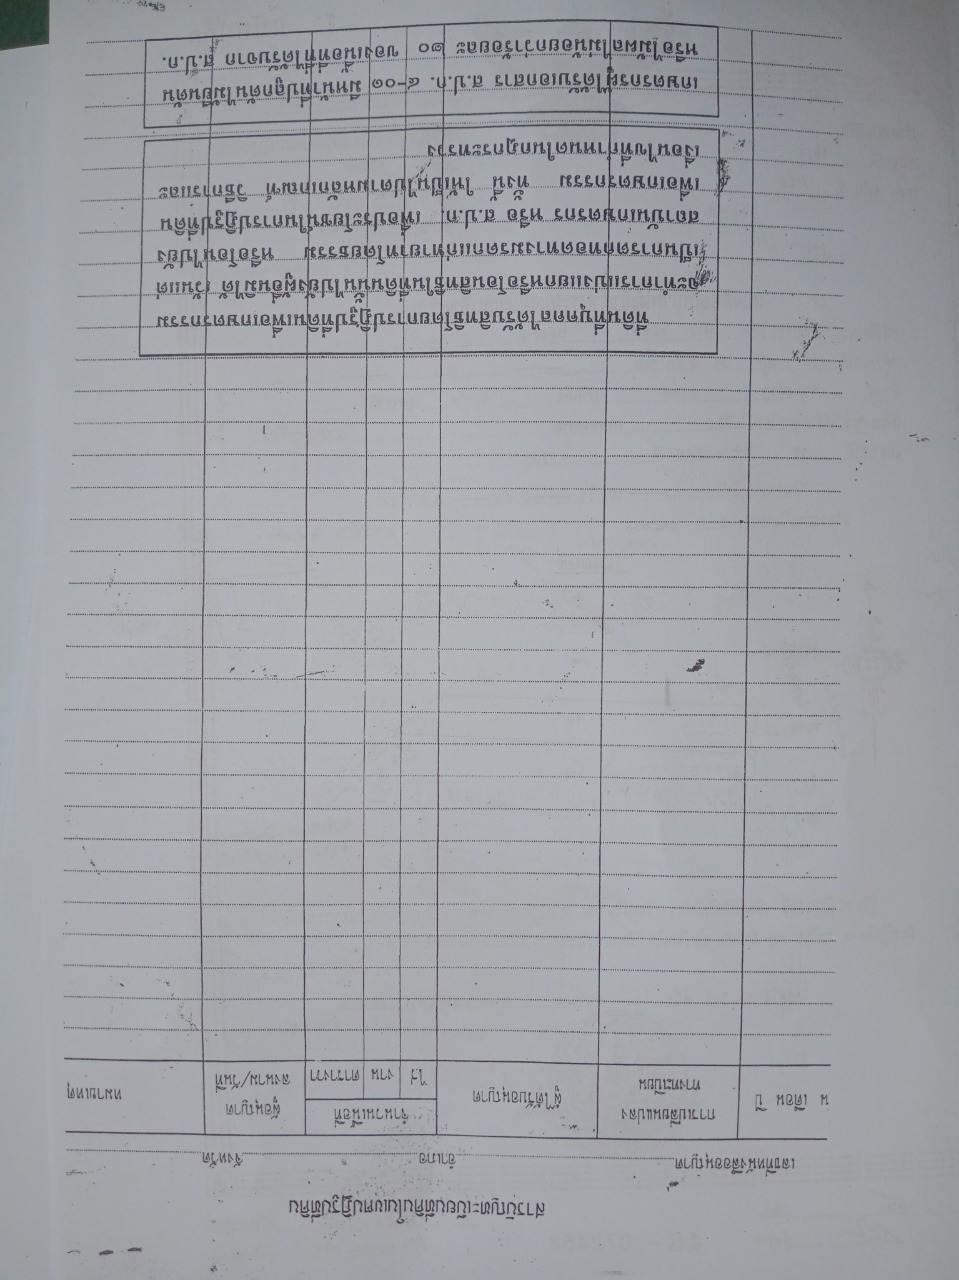 สารบัญทะเบียนที่ดินในเขตปฏิรูปที่ดิน
เลขที่หนังสืออนุญาต อำเภอ จังหวัด
น เดือน ปี การเปลี่ยนแปลง ทางทะเบียน ผู้ได้รับอนุญาต จำนวนเนื้อที่ ผู้อนุญาต ลงนาม/วันที่ หมายเหตุ
ไร่ งาน ตารางวา
ที่ดินที่บุคคลได้รับสิทธิโดยการปฏิรูปที่ดินเพื่อเกษตรกรรม
จะทำการแบ่งแยกหรือโอนสิทธิในที่ดินนั้นไปยังผู้อื่นมิได้ เว้นแต่
เป็นการตกทอดทางมรดกแก่ทายาทโดยธรรม หรือโอนไปยัง
สถาบันเกษตรกร หรือ ส.ป.ก. เพื่อประโยชน์ในการปฏิรูปที่ดิน
เพื่อเกษตรกรรม ทั้งนี้ ให้เป็นไปตามหลักเกณฑ์ วิธีการและ
เงื่อนไขที่กำหนดในกฎกระทรวง
เกษตรกรผู้ได้รับเอกสาร ส.ป.ก. ๔-๐๑ มีหน้าที่ปลูกต้นไม้ยืนต้น
หรือไม้ผลไม่น้อยกว่าร้อยละ ๒๐ ของเนื้อที่ที่ได้รับจาก ส.ป.ก.